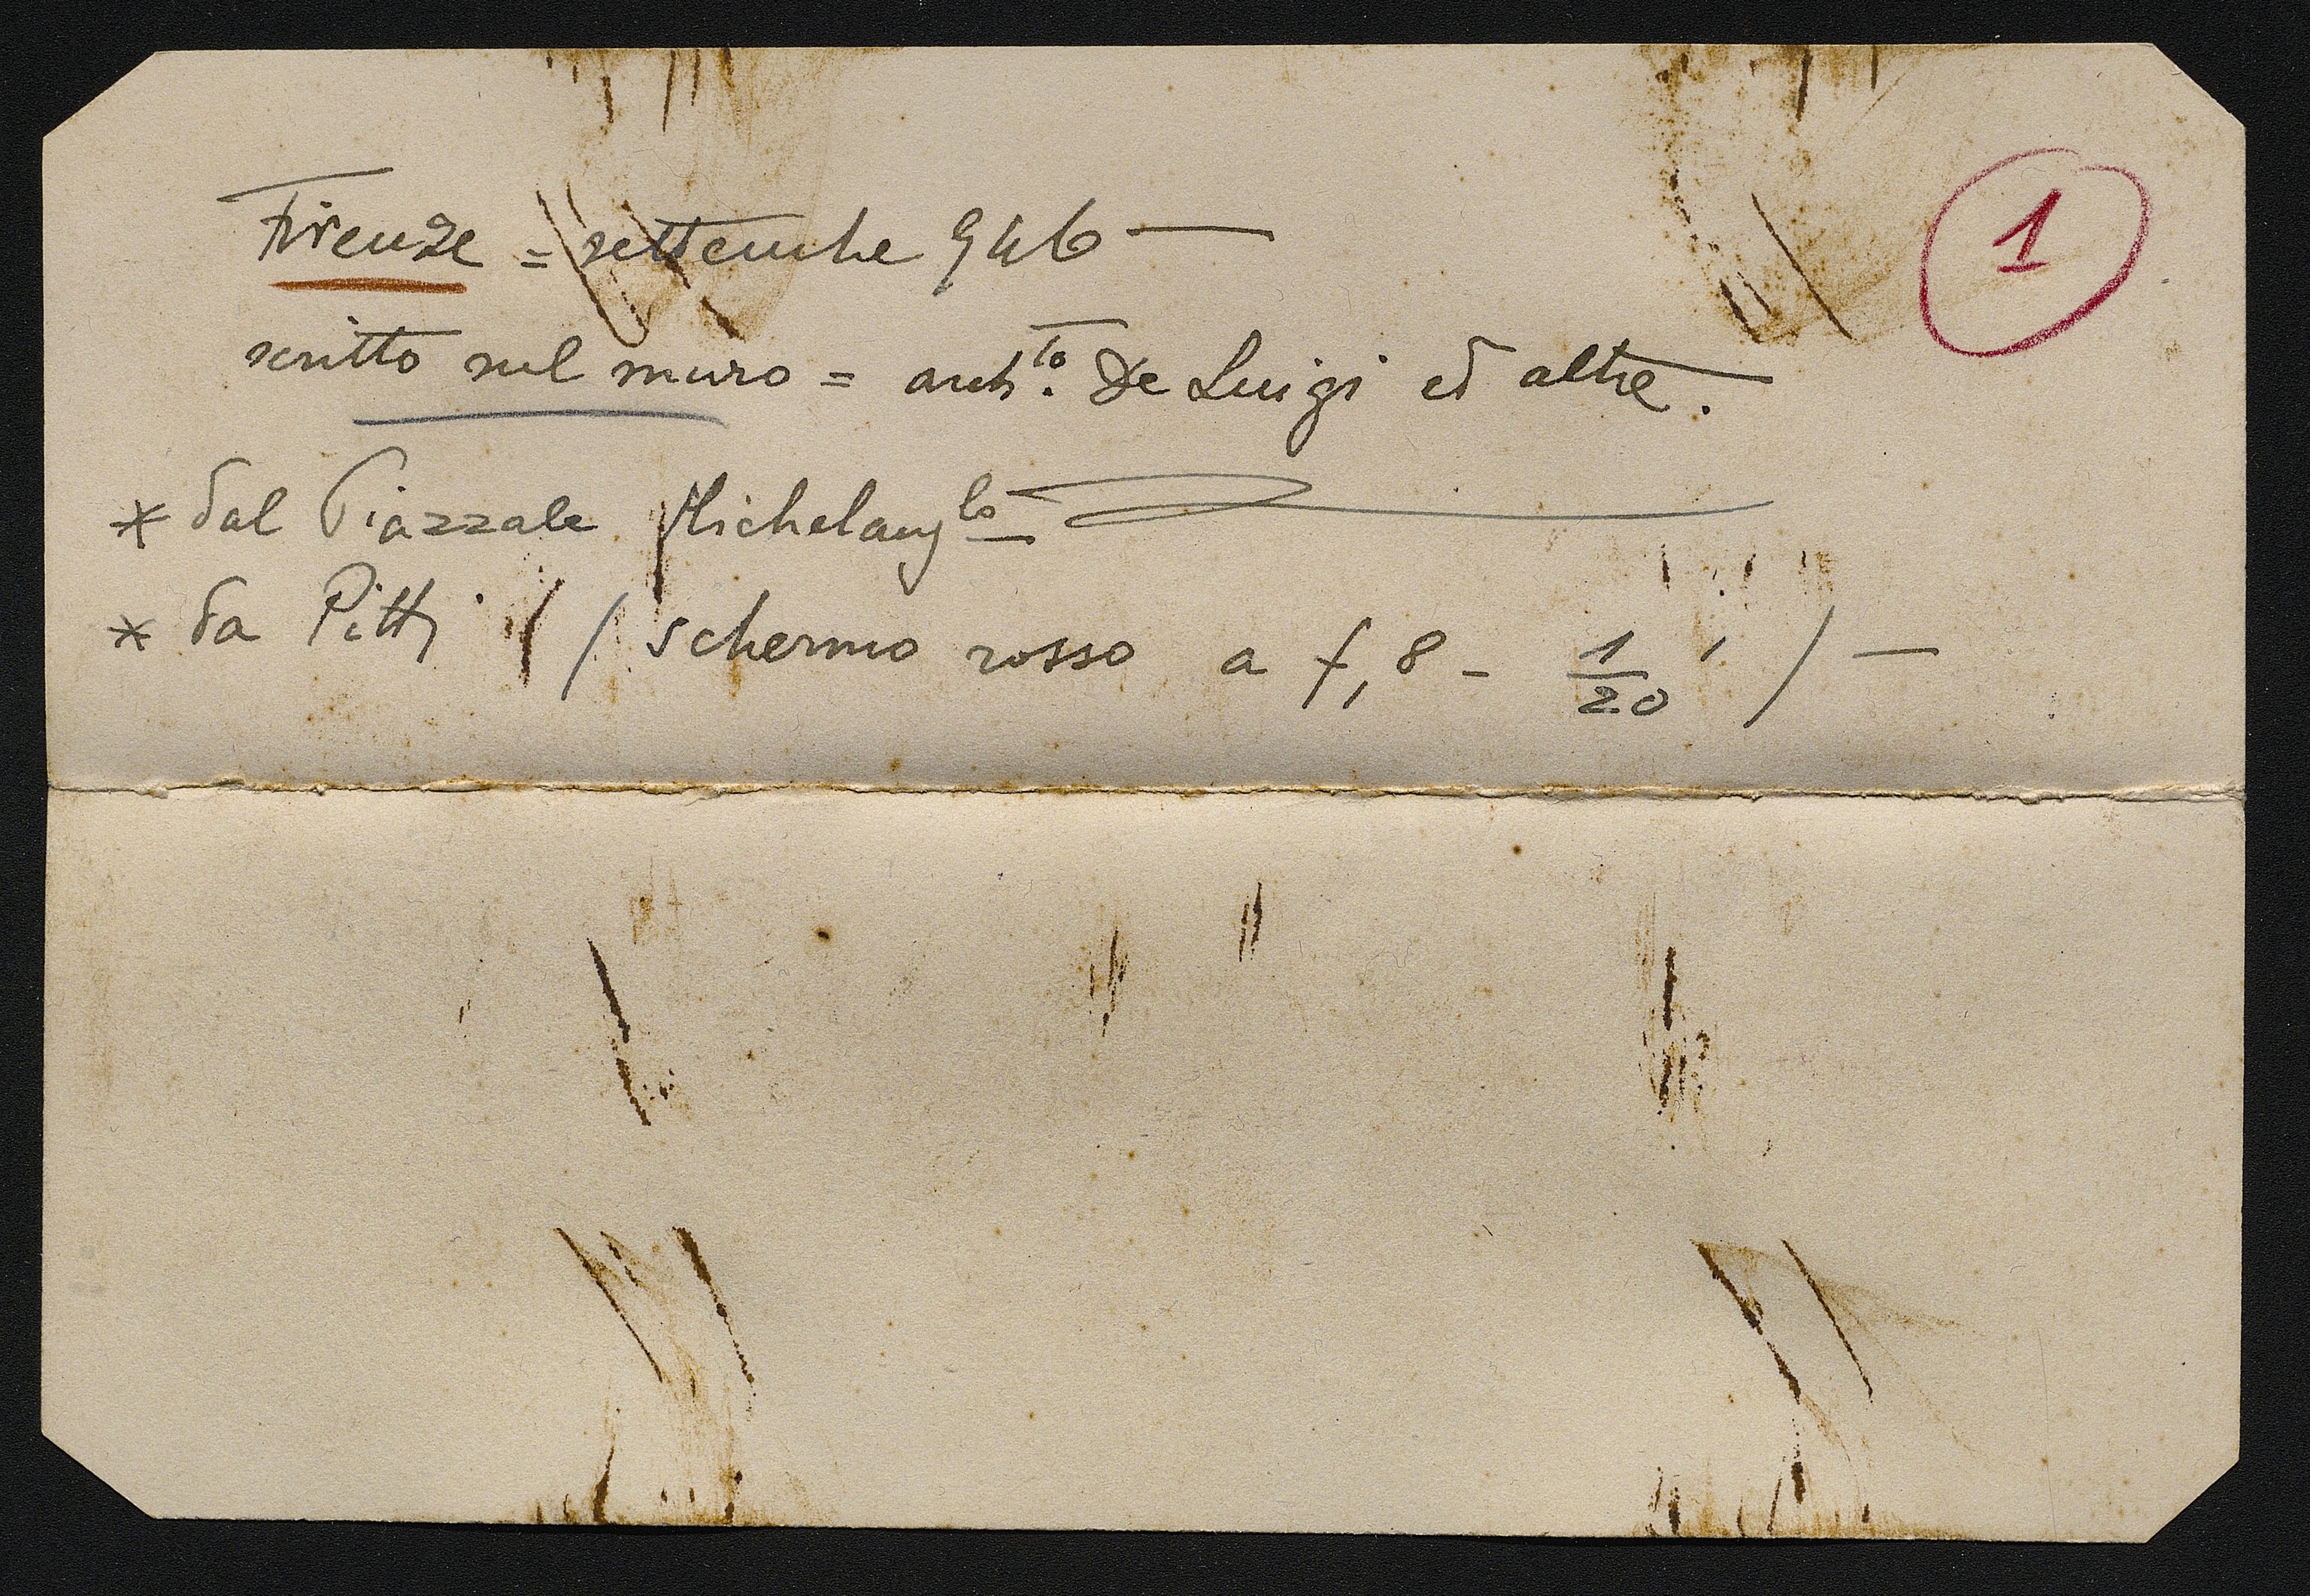 1
Firenze = settembre 946 —
scritto sul muro = archto. De Luigi ed altre.
* dal Piazzale Michelanglo
* da Pitti / schermo rosso a f,8 - 1/20' / —